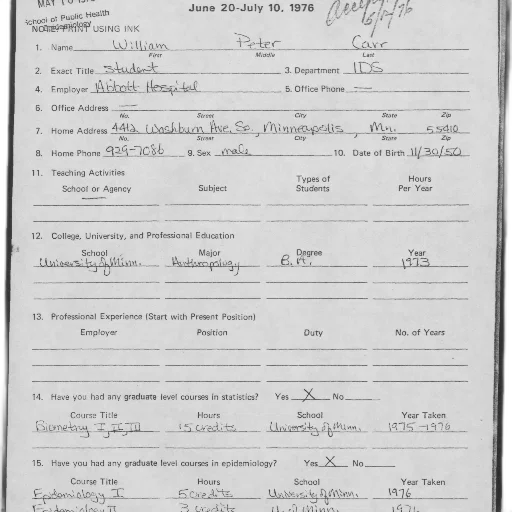 MAY
June 20-July 10, 1976
School of Public Health
Epidemiology
NOTE: PRINT USING INK
6/2/76
1. Name William Peter Carr
First Middle Last
2. Exact Title Student 3. Department IDS
4. Employer Abbott Hospital 5. Office Phone —
6. Office Address —
No. Street City State Zip
7. Home Address 4412 Washburn Ave. So., Minneapolis, Mn. 55410
No. Street City State Zip
8. Home Phone 929-7086 9. Sex male 10. Date of Birth 11/30/50
11. Teaching Activities
School or Agency Subject Types of Students Hours Per Year
—
12. College, University, and Professional Education
School Major Degree Year
University of Minn. Anthropology B.A. 1973
13. Professional Experience (Start with Present Position)
Employer Position Duty No. of Years
14. Have you had any graduate level courses in statistics? Yes X No
Course Title Hours School Year Taken
Biometry I, II, III 15 credits University of Minn. 1975-1976
15. Have you had any graduate level courses in epidemiology? Yes X No
Course Title Hours School Year Taken
Epidemiology I 5 credits University of Minn. 1976
Epidemiology II 3 credits U. of Minn. 1976